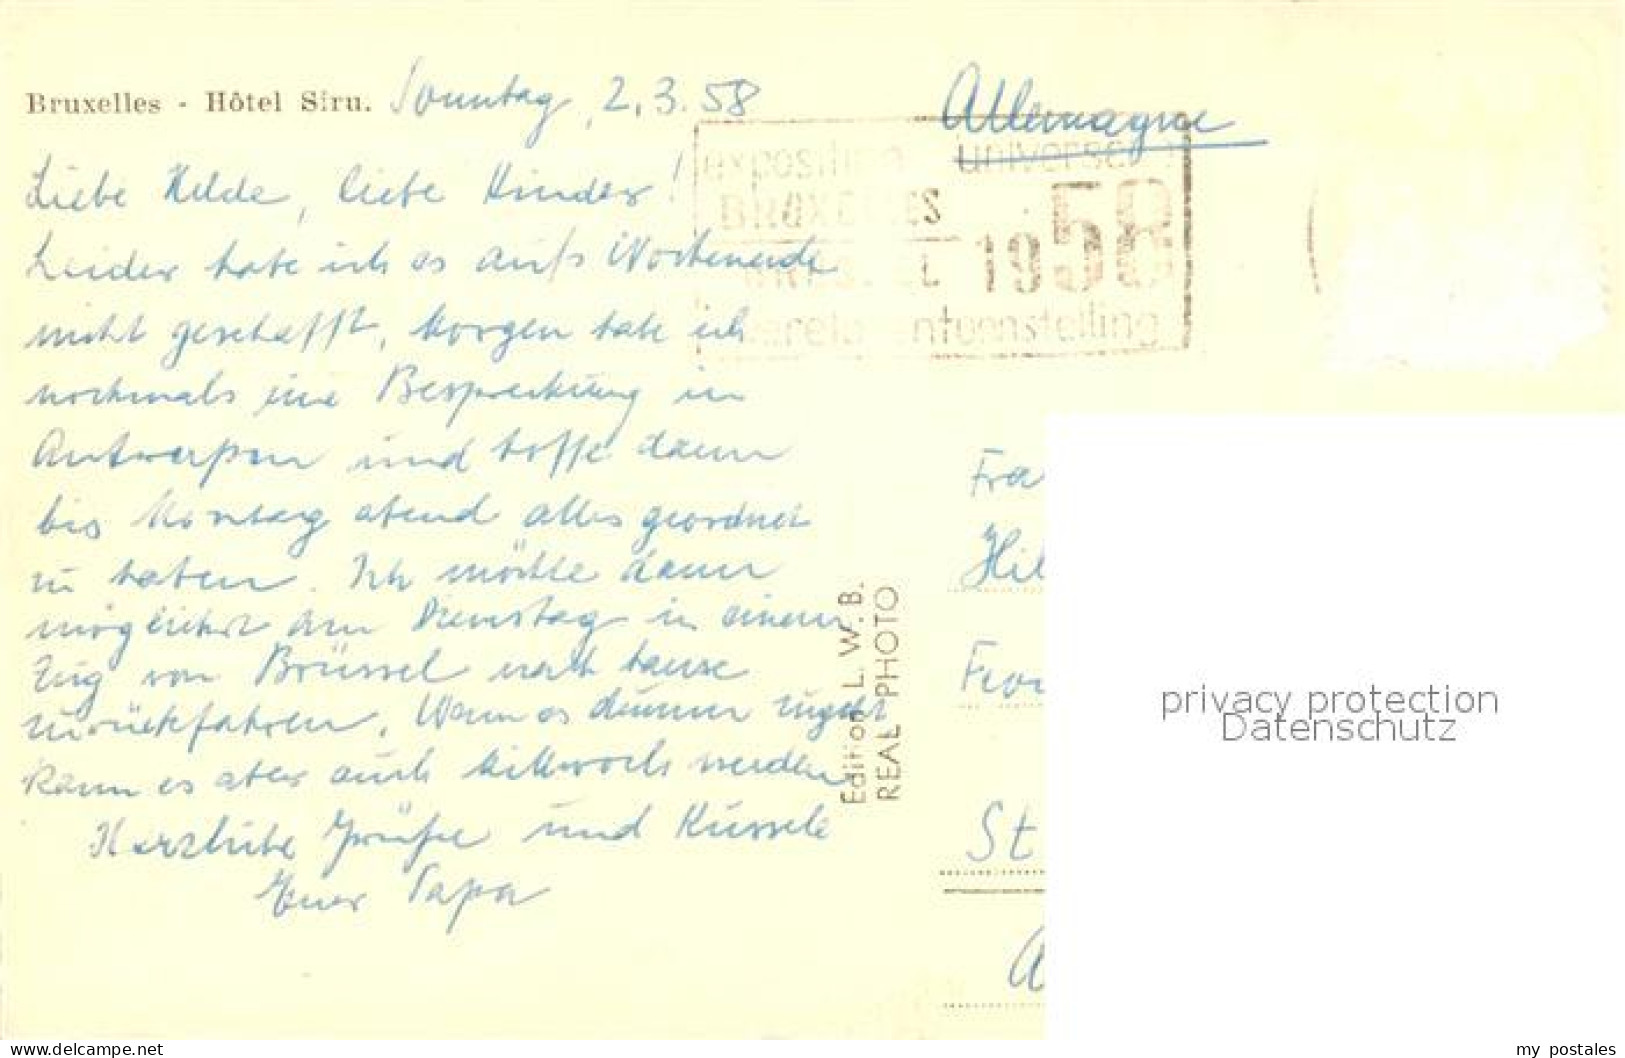 Bruxelles - Hôtel Siru. Sonntag, 2.3.58
Liebe Hilde, liebe Kinder!
Leider habe ich es aufs Wochenende
nicht geschafft. Morgen habe ich
nochmals eine Besprechung in
Antwerpen und hoffe dann
bis Montag abend alles geordnet
zu haben. Ich möchte dann
möglichst am Dienstag in einem
Zug von Brüssel nach hause
zurückfahren. Wenn es dumm zugeht
kann es aber auch Mittwoch werden
Herzliche Grüße und Küssele
Euer Papa
Allemagne
exposition universelle
BRUXELLES
BRUSSEL 1958
wereldtentoonstelling
Edition L. W. B.
REAL PHOTO
Fra
Hil
Fro
St
A
privacy protection
Datenschutz
www.delcampe.net/de
my postales